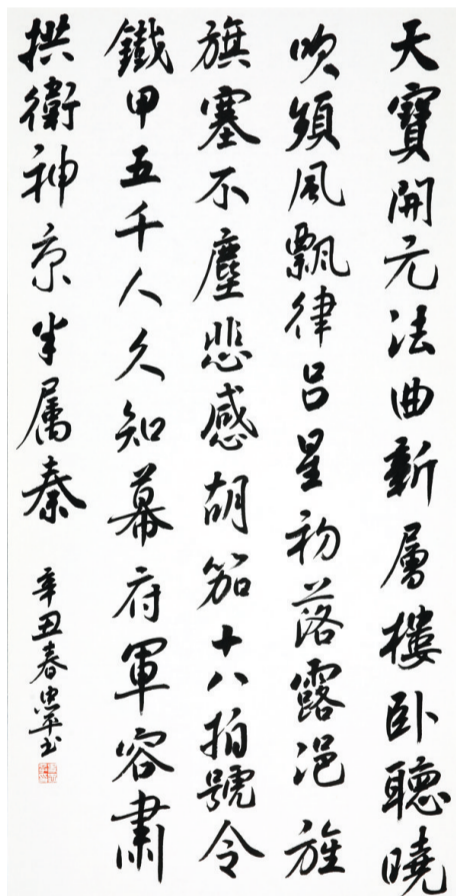 天寶開元法曲新層樓卧聽曉
吹頻風飄律呂星初落露浥旌
旗塞不塵悲感胡笳十八拍號令
鐵甲五千人久知幕府軍容肅
拱衛神京半屬秦
辛丑春忠平书